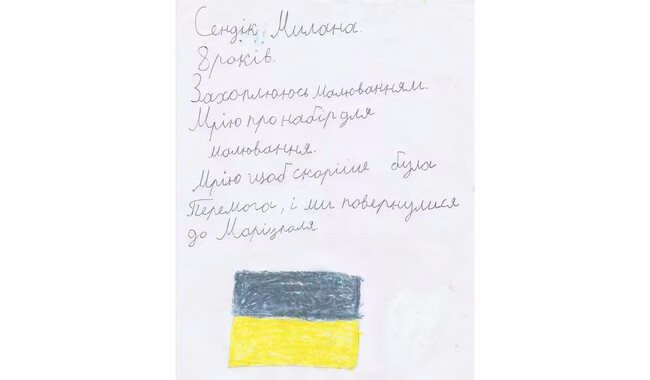 Сендік Милана.
8 років.
Захоплююсь малюванням.
Мрію про набір для
малювання.
Мрію щоб скоріше була
Перемога, і ми повернулися
до Маріуполя